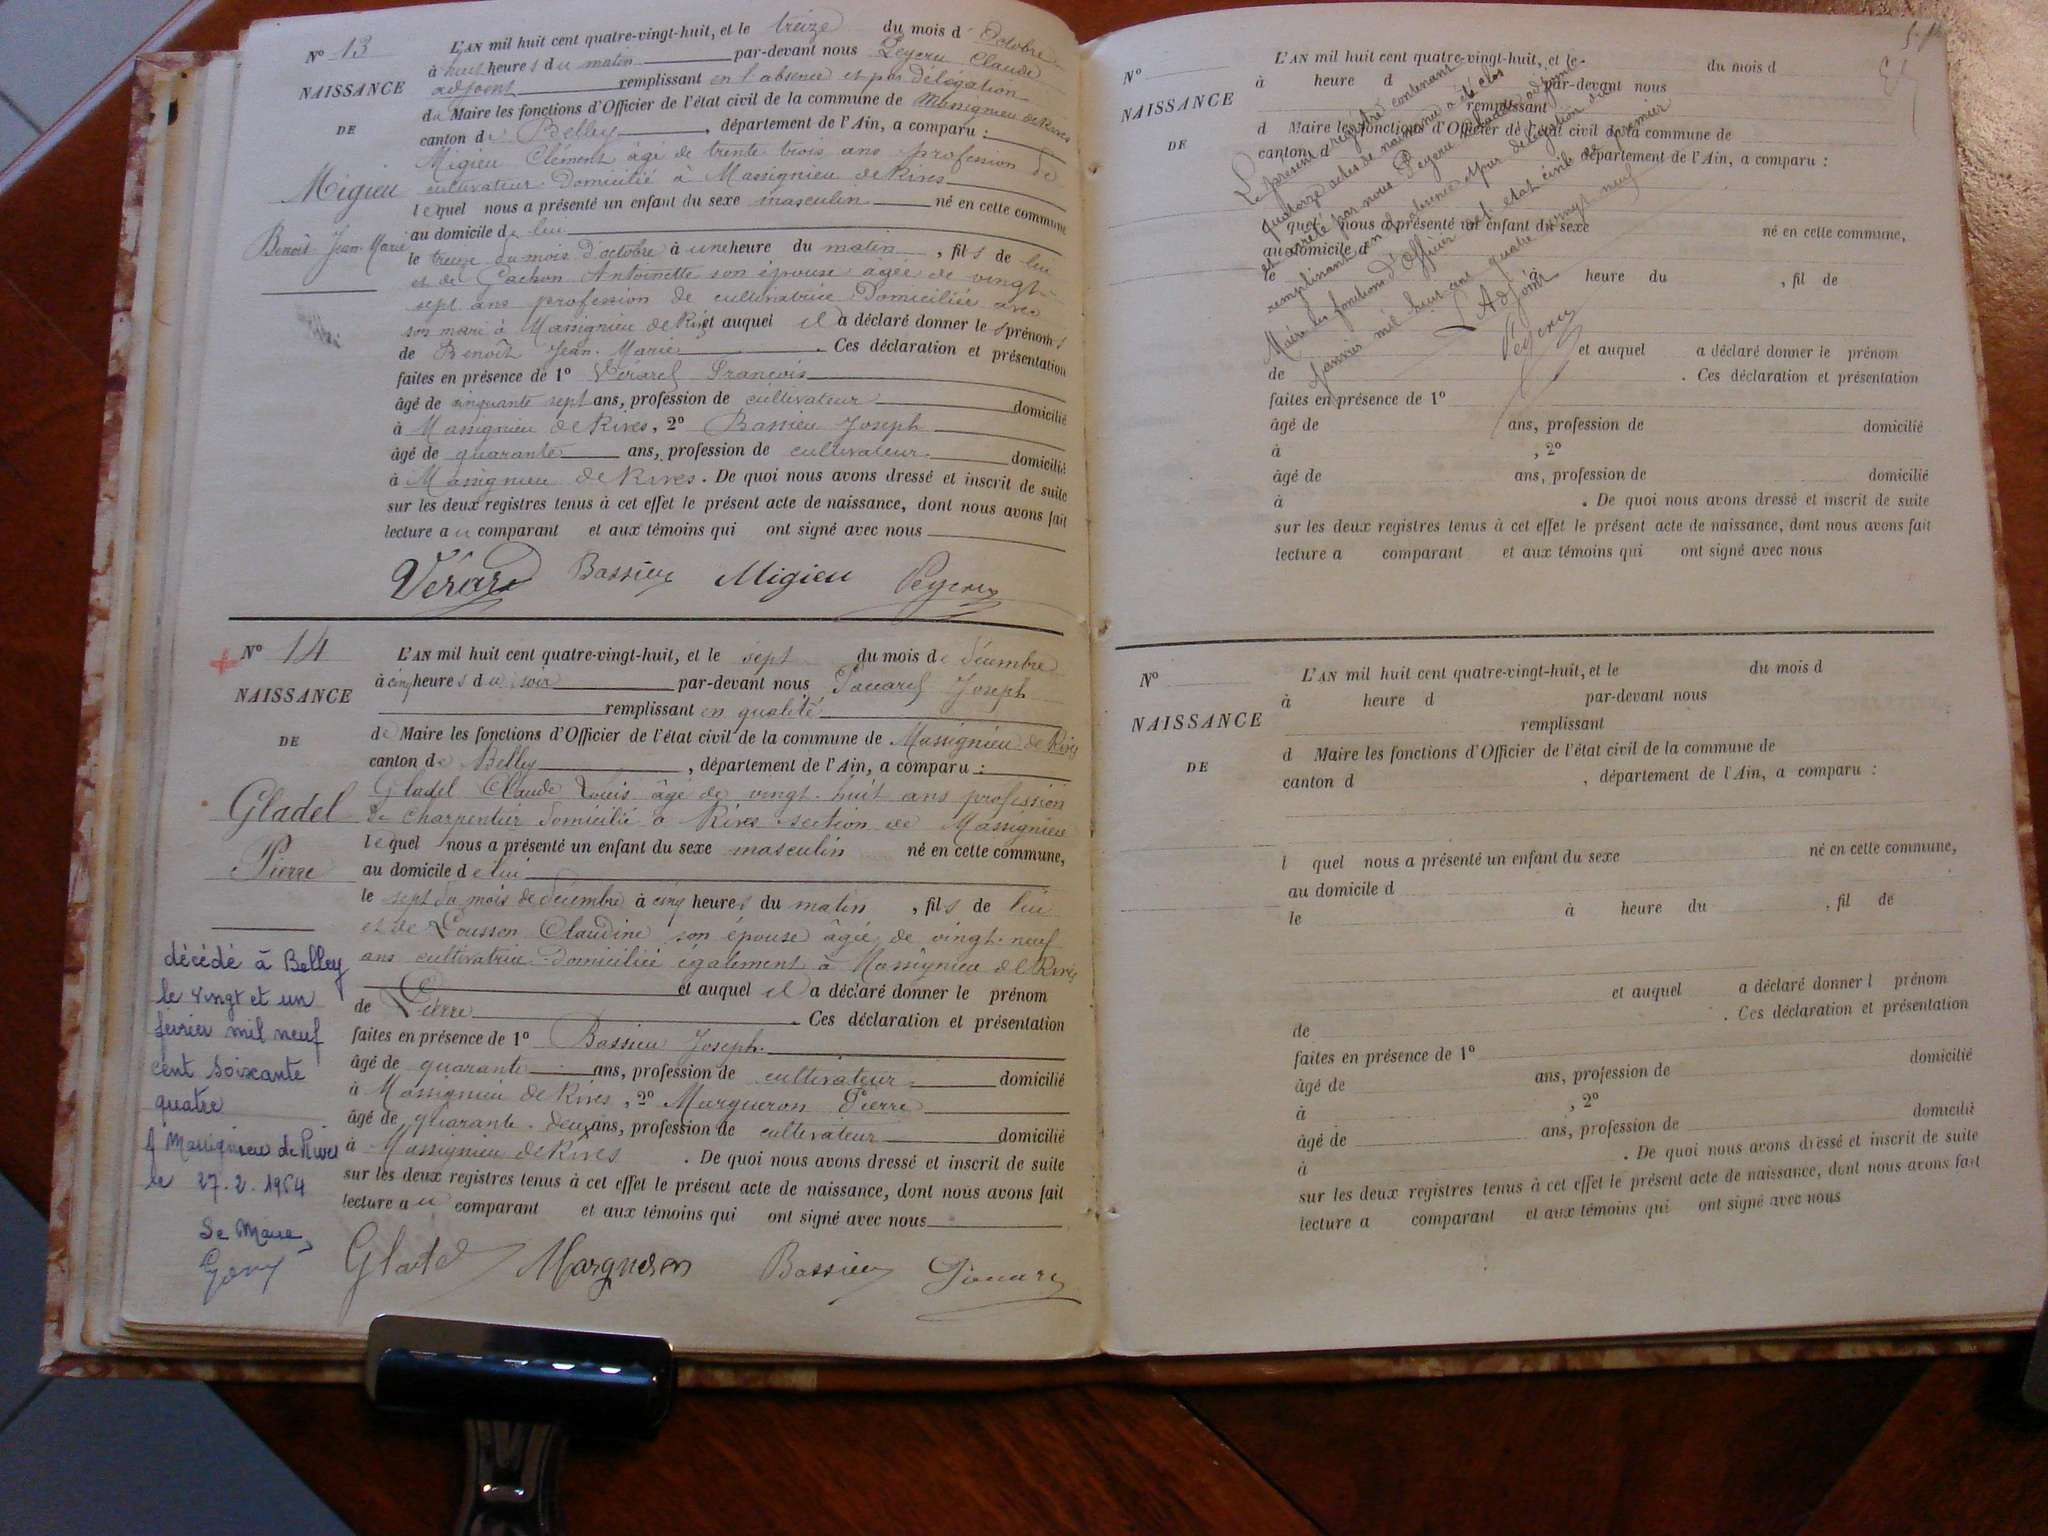 N° 13
NAISSANCE
DE
Migieu
Benoît Jean-Marie
L'AN mil huit cent quatre-vingt-huit, et le treize du mois d'Octobre
à huit heures du matin par-devant nous Peyeru Claude
adjoint remplissant en l'absence et par délégation
du Maire les fonctions d'Officier de l'état civil de la commune de Massignieu de Rives
canton de Belley, département de l'Ain, a comparu :
Migieu Clément âgé de trente trois ans profession de
cultivateur Domicilié à Massignieu de Rives
lequel nous a présenté un enfant du sexe masculin né en cette commune
au domicile de lui
le treize du mois d'octobre à une heure du matin, fils de lui
et de Gachon Antoinette son épouse âgée de vingt
sept ans profession de cultivatrice Domiciliée avec
son mari à Massignieu de Rives et auquel il a déclaré donner les prénoms
de Benoît Jean-Marie. Ces déclaration et présentation
faites en présence de 1° Vérard François
âgé de cinquante sept ans, profession de cultivateur domicilié
à Massignieu de Rives, 2° Bassieu Joseph
âgé de quarante ans, profession de cultivateur domicilié
à Massignieu de Rives. De quoi nous avons dressé et inscrit de suite
sur les deux registres tenus à cet effet le présent acte de naissance, dont nous avons fait
lecture au comparant et aux témoins qui ont signé avec nous
Vérard Bassieu Migieu Peyeru
N° 14
NAISSANCE
DE
Gladel
Pierre
décédé à Belley
le vingt et un
février mil neuf
cent soixante
quatre
A Massignieu de Rives
le 27.2.1964
Le Maire,
L'AN mil huit cent quatre-vingt-huit, et le sept du mois de décembre
à cinq heures du soir par-devant nous Joseph
remplissant en qualité
de Maire les fonctions d'Officier de l'état civil de la commune de Massignieu de Rives
canton de Belley, département de l'Ain, a comparu :
Gladel Claude Louis âgé de vingt-huit ans profession
de charpentier domicilié à Rives section de Massignieu
lequel nous a présenté un enfant du sexe masculin né en cette commune,
au domicile de lui
le sept du mois de décembre à cinq heures du matin, fils de lui
et de Cousson Claudine son épouse âgée de vingt-neuf
ans cultivatrice Domiciliée également à Massignieu de Rives
et auquel il a déclaré donner le prénom
de Pierre. Ces déclaration et présentation
faites en présence de 1° Bassieu Joseph
âgé de quarante ans, profession de cultivateur domicilié
à Massignieu de Rives, 2° Margueron Pierre
âgé de quarante-deux ans, profession de cultivateur domicilié
à Massignieu de Rives. De quoi nous avons dressé et inscrit de suite
sur les deux registres tenus à cet effet le présent acte de naissance, dont nous avons fait
lecture au comparant et aux témoins qui ont signé avec nous
Gladel Margueron Bassieu
N°
NAISSANCE
DE
L'AN mil huit cent quatre-vingt-huit, et le du mois d
à heure d par-devant nous
remplissant
d Maire les fonctions d'Officier de l'état civil de la commune de
canton d département de l'Ain, a comparu :
l quel nous a présenté un enfant du sexe né en cette commune,
au domicile d
le à heure du , fil de
et auquel a déclaré donner le prénom
de . Ces déclaration et présentation
faites en présence de 1°
âgé de ans, profession de domicilié
à , 2°
âgé de ans, profession de domicilié
à . De quoi nous avons dressé et inscrit de suite
sur les deux registres tenus à cet effet le présent acte de naissance, dont nous avons fait
lecture a comparant et aux témoins qui ont signé avec nous
Le présent registre contenant
quatorze actes de naissance a été clos
et arrêté par nous Peyeru Claude adjoint
remplissant en l'absence et par délégation du
Maire les fonctions d'Officier de l'état civil ce premier
Janvier mil huit cent quatre vingt neuf
L'Adjoint
Peyeru
N°
NAISSANCE
DE
L'AN mil huit cent quatre-vingt-huit, et le du mois d
à heure d par-devant nous
remplissant
d Maire les fonctions d'Officier de l'état civil de la commune de
canton d , département de l'Ain, a comparu :
l quel nous a présenté un enfant du sexe né en cette commune,
au domicile d
le à heure du , fil de
et auquel a déclaré donner l prénom
de . Ces déclaration et présentation
faites en présence de 1°
âgé de ans, profession de domicilié
à , 2°
âgé de ans, profession de domicilié
à . De quoi nous avons dressé et inscrit de suite
sur les deux registres tenus à cet effet le présent acte de naissance, dont nous avons fait
lecture a comparant et aux témoins qui ont signé avec nous